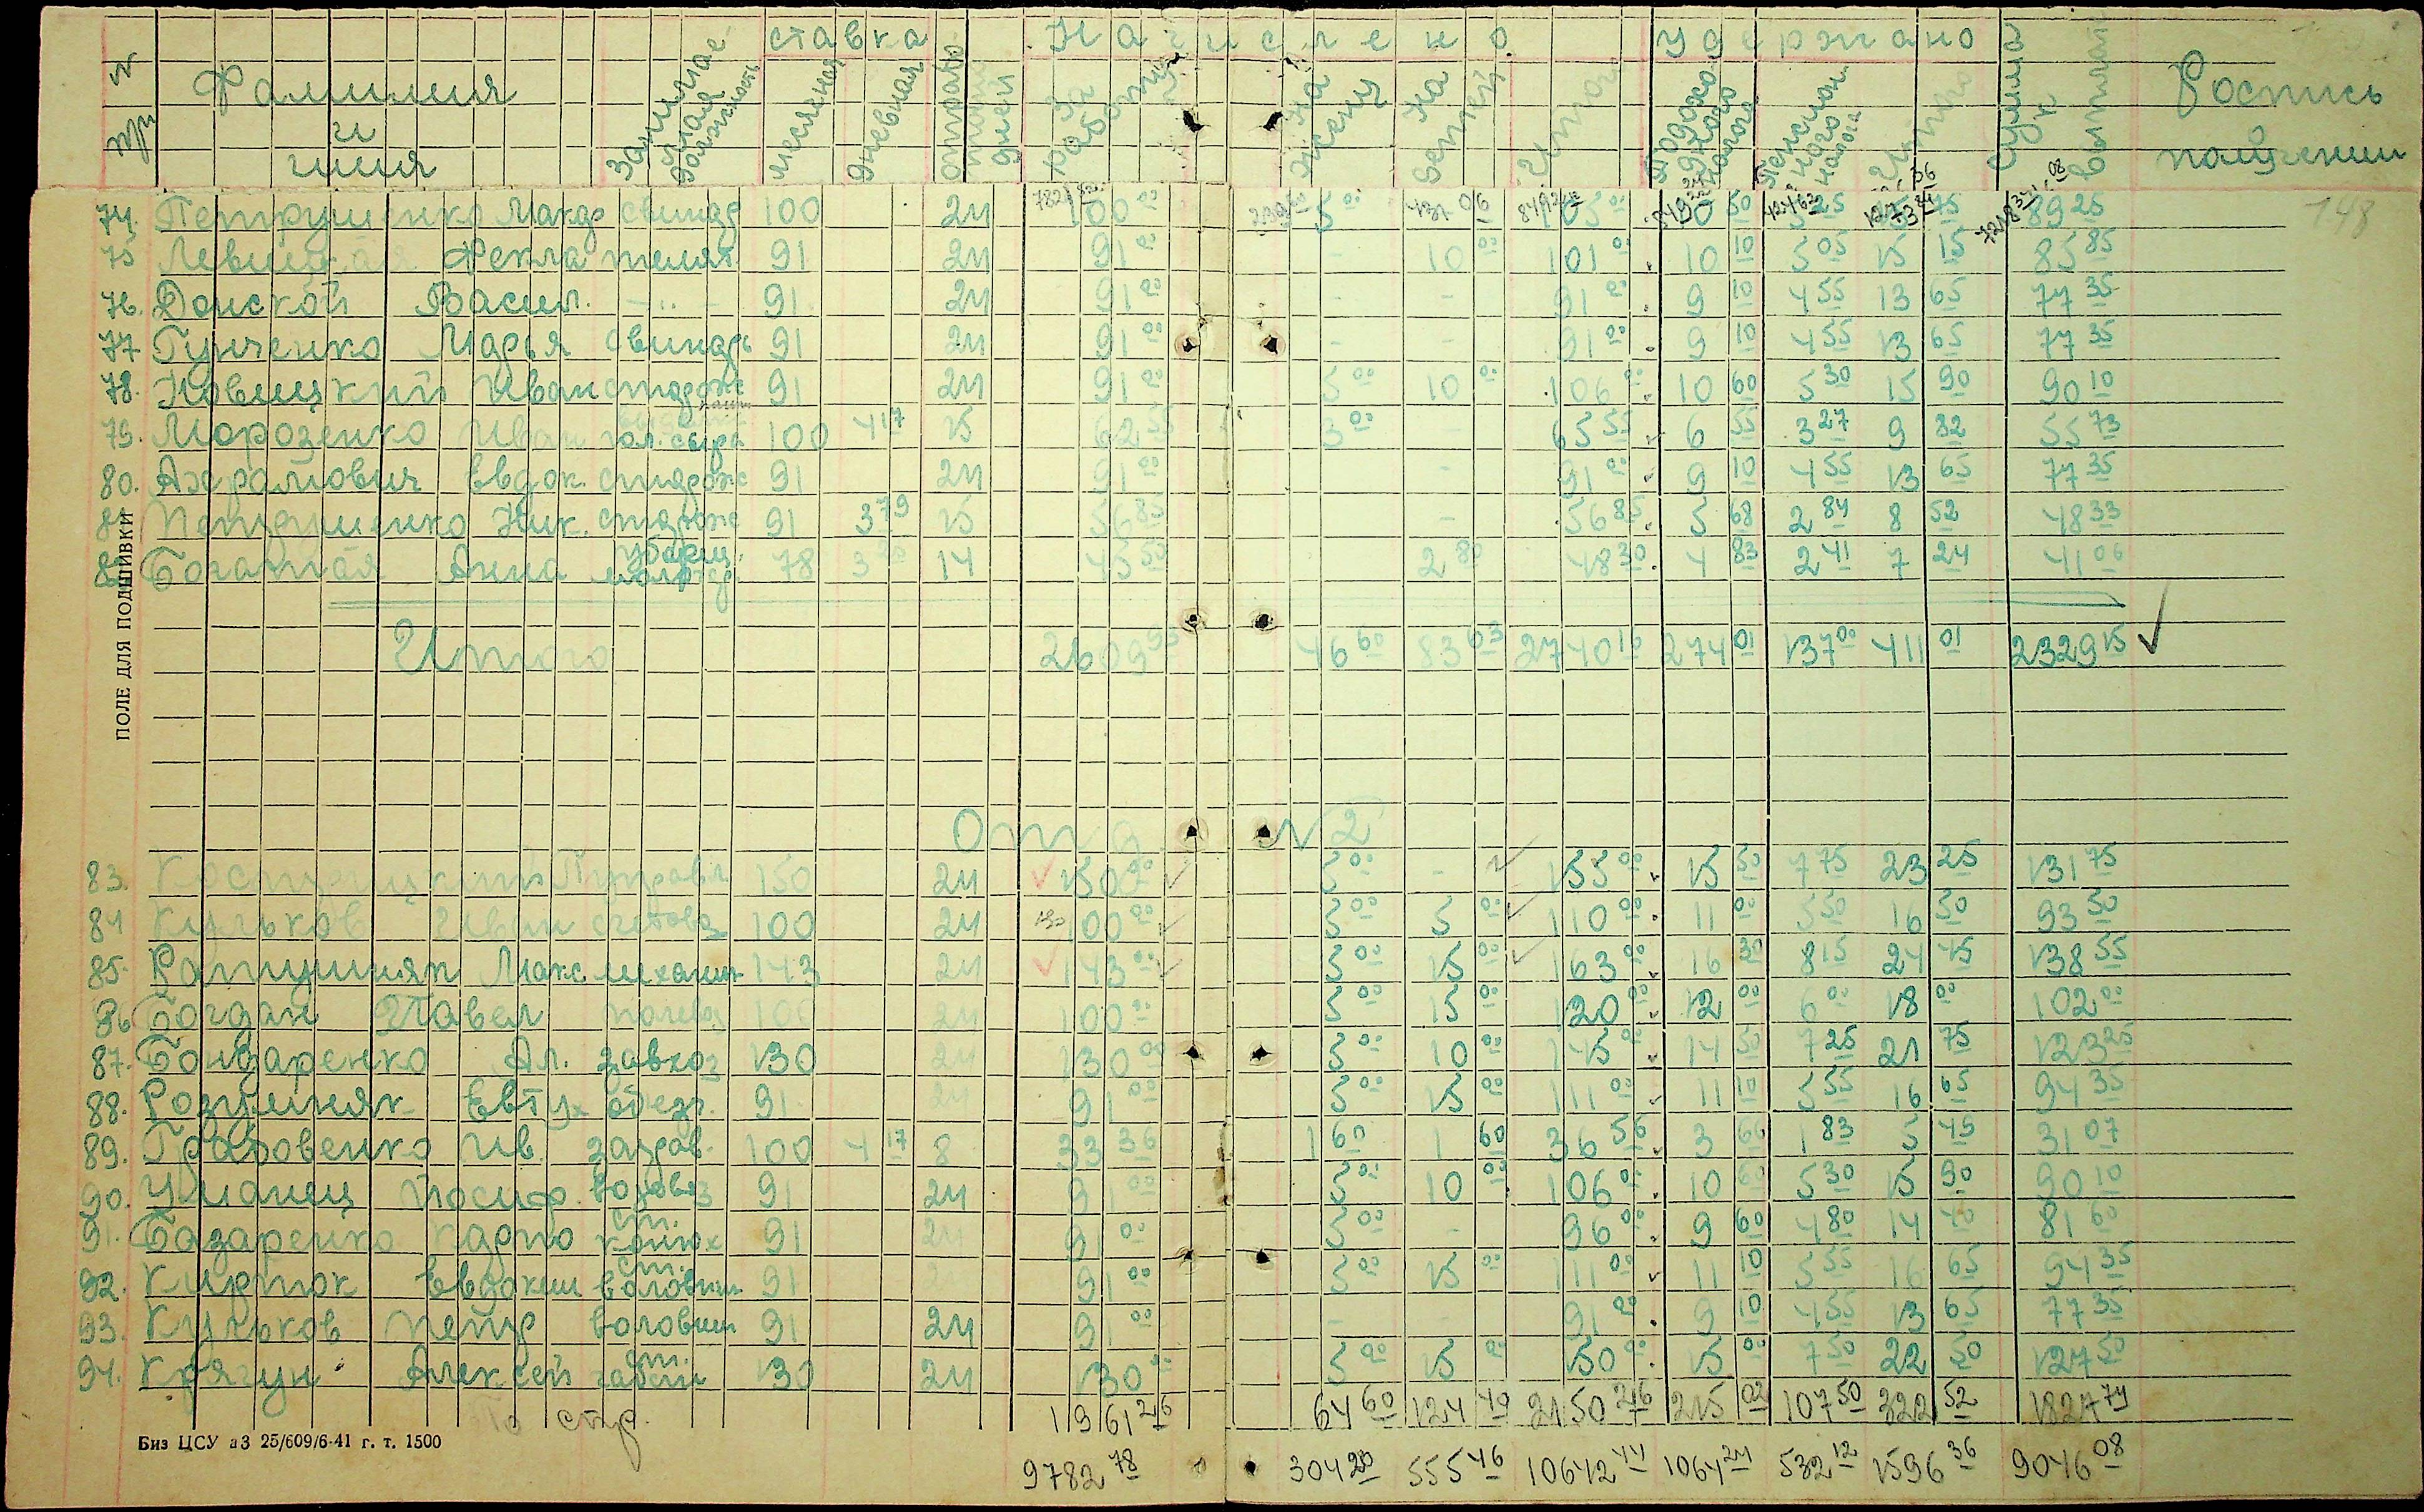 N п/п Фамилия и имя Занимаемая должность ставка месячная дневная отработано дней Начислено За работу На жену На детей Итого Удержано Подоходного налога Пенсион. налога Итого Сумма к выплате Роспись получении
148
74. Петрушенко Макар свинар 100 24 100 00 5 00 105 00 10 50 5 25 15 75 89 25
75 Левицкая Фекла телят 91 24 91 00 - 10 00 101 00 10 10 5 05 15 15 85 85
76. Донской Васил. -"- 91 24 91 00 - - 91 00 9 10 4 55 13 65 77 35
77 Гунченко Марья свинарь 91 24 91 00 - - 91 00 9 10 4 55 13 65 77 35
78. Новицкий Иван сторож 91 24 91 00 5 00 10 00 106 00 10 60 5 30 15 90 90 10
79. Морозенко Иван 100 4 17 15 62 55 3 00 - 65 55 6 55 3 27 9 82 55 73
80. Ахрамович Евдок. сторож 91 24 91 00 - 91 00 9 10 4 55 13 65 77 35
81 Петрушенко Ник. сторож 91 3 79 15 56 85 - 56 85 5 68 2 84 8 52 48 33
82 Богатая Анна уборщ. 78 3 25 14 45 50 2 80 48 30 4 83 2 41 7 24 41 06
Итого 2609 95 46 60 83 63 2740 10 274 01 137 00 411 01 2329 15
Отд. N 2
83. Костушицкий П управл 150 24 150 00 5 00 - 155 00 15 50 7 75 23 25 131 75
84 Кульков Иван счетовод 100 24 100 00 5 00 5 00 110 00 11 00 5 50 16 50 93 50
85. Ратушняк Макс механик 143 24 143 00 5 00 15 00 163 00 16 30 8 15 24 45 138 55
86 Богдан Павел полевод 100 24 100 00 5 00 15 00 120 00 12 00 6 00 18 00 102 00
87. Бондаренко Ал. завхоз 130 24 130 00 5 00 10 00 145 00 14 50 7 25 21 75 123 25
88. Розумняк Евтух объезд. 91 24 91 00 5 00 15 00 111 00 11 10 5 55 16 65 94 35
89. Грабовенко Ив. заправ. 100 4 17 8 33 36 1 60 1 60 36 56 3 66 1 83 5 49 31 07
90. Уманец Йосиф. водовоз 91 24 91 00 5 00 10 00 106 00 10 60 5 30 15 90 90 10
91. Базаренко Карпо ст. конюх 91 24 91 00 5 00 - 96 00 9 60 4 80 14 40 81 60
92. Курток Евдоким ст. воловник 91 91 00 5 00 15 00 111 00 11 10 5 55 16 65 94 35
93. Кульков Петр воловник 91 24 91 00 - - 91 00 9 10 4 55 13 65 77 35
94. Крягун Алексей ст. 130 24 130 00 5 00 15 00 150 00 15 00 7 50 22 50 127 50
По стр. 1961 26 64 60 124 40 2150 26 215 02 107 50 322 52 1827 74
Биз ЦСУ з3 25/609/6-41 г. т. 1500
9782 78 304 20 555 46 10642 44 1064 24 532 12 1596 36 9046 08
ПОЛЕ ДЛЯ ПОДШИВКИ